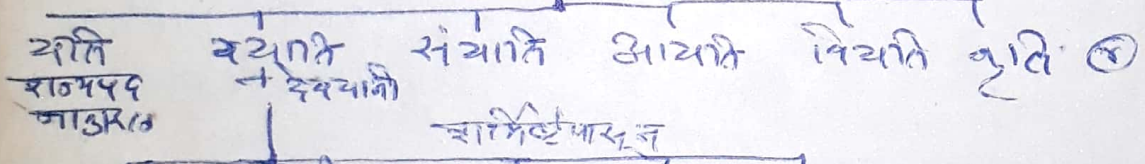 यति ययाति संयाति आयाति वियति कृति ४
राज्यपद + देवयानी
नाकारले
शर्मिष्ठेपासून